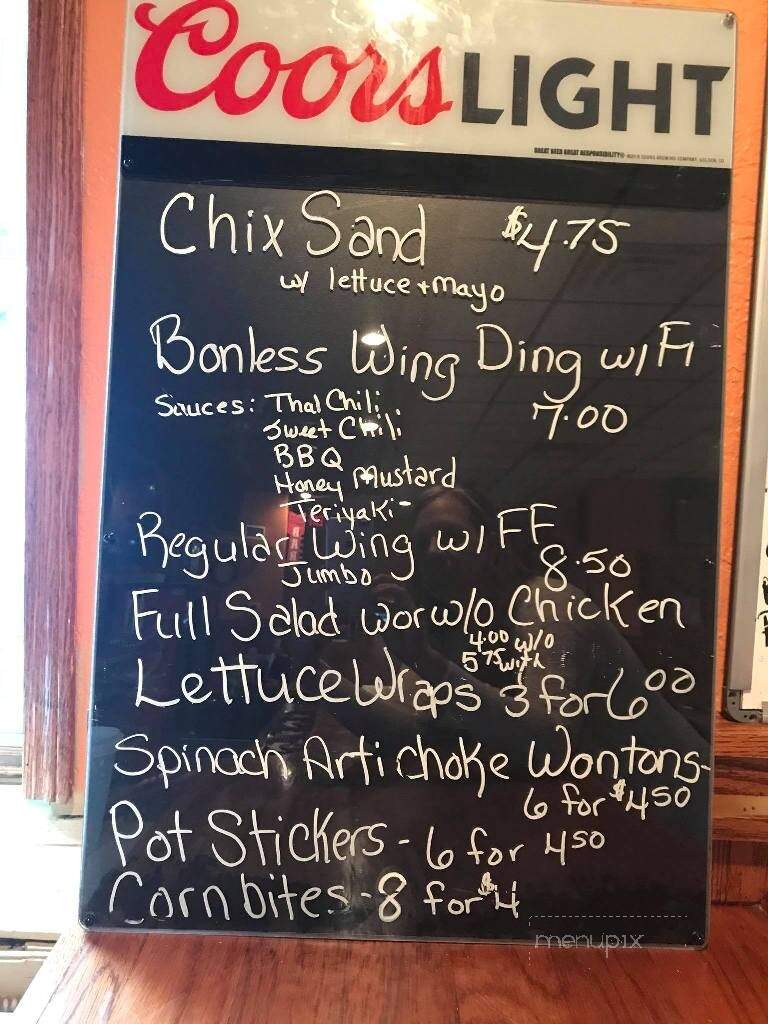 Coors LIGHT
GREAT BEER GREAT RESPONSIBILITY®
Chix Sand $4.75
w/ lettuce + mayo
Bonless Wing Ding w/ FF
Sauces: Thai Chili 7.00
Sweet Chili
BBQ
Honey Mustard
Teriyaki
Regular Wing w/ FF
Jumbo 8.50
Full Salad w or w/o Chicken
4.00 w/o
5.75 with
Lettuce Wraps 3 for 6.00
Spinach Artichoke Wontons-
6 for $4.50
Pot Stickers - 6 for 4.50
Corn bites - 8 for $4
menupix